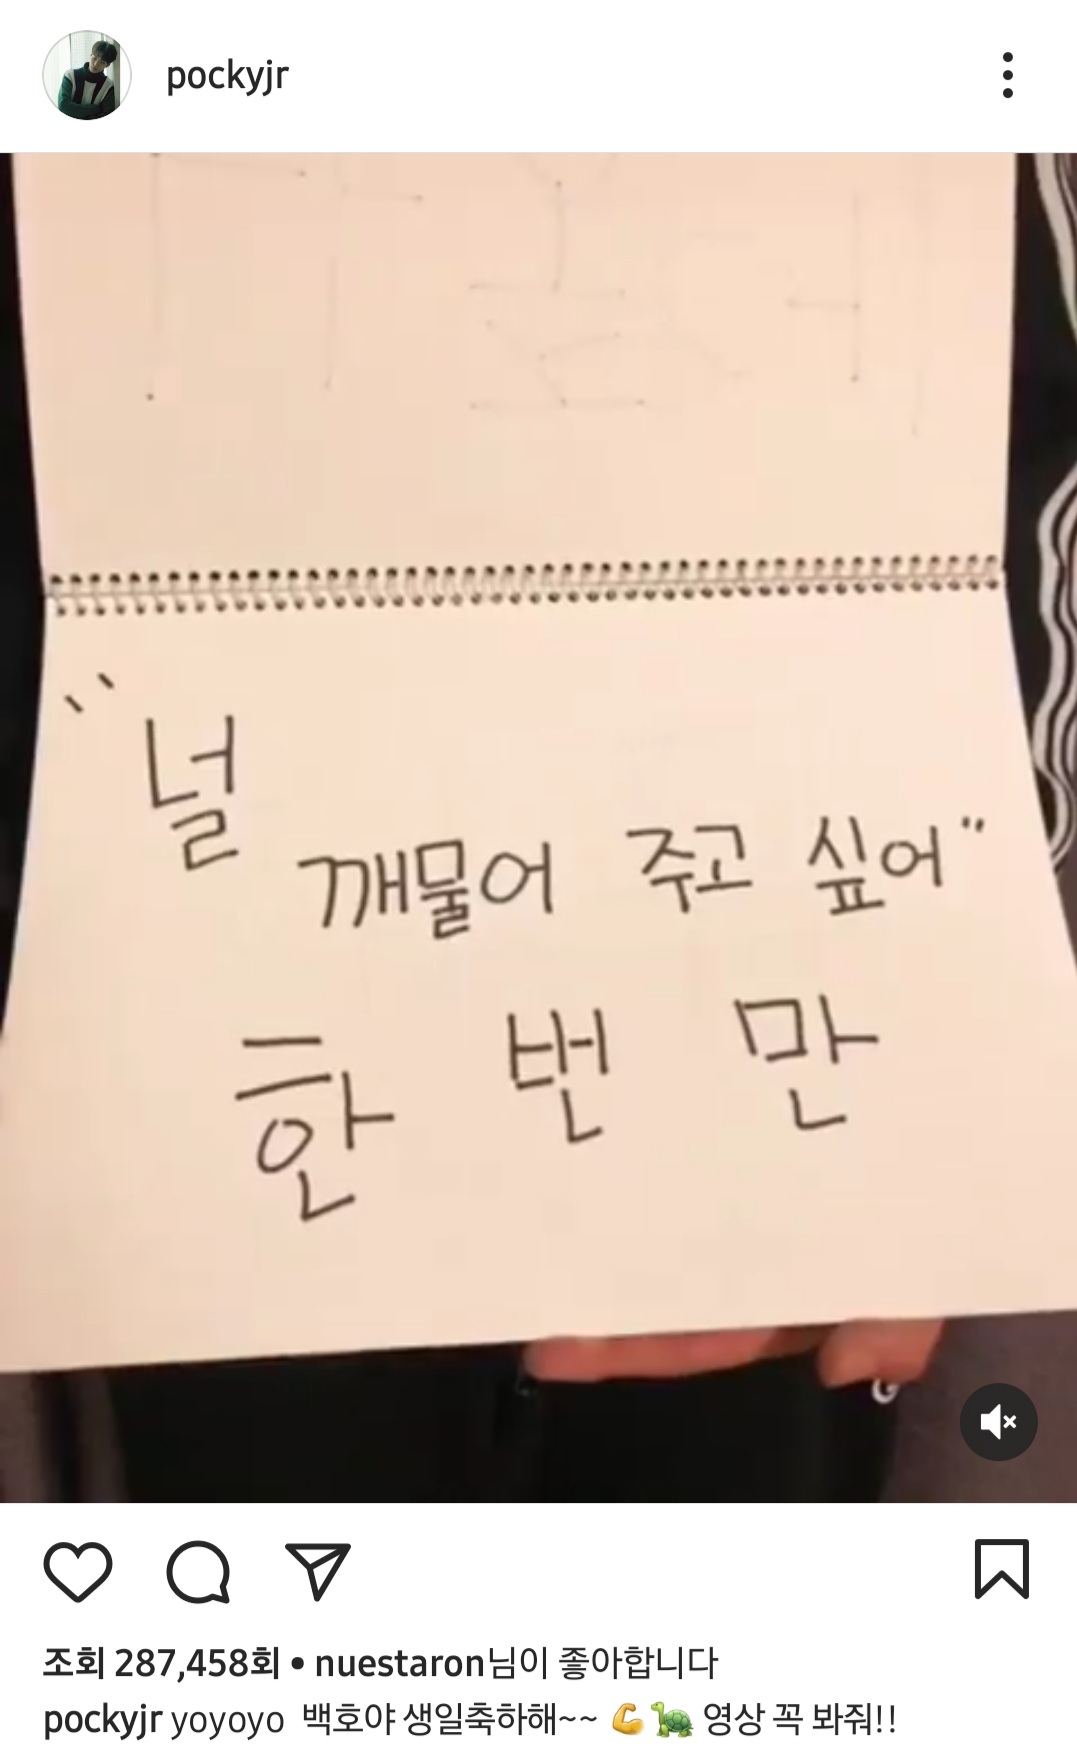 pockyjr
"널
깨물어 주고 싶어"
한 번 만
조회 287,458회 • nuestaron님이 좋아합니다
pockyjr yoyoyo 백호야 생일축하해~~ 💪🐢 영상 꼭 봐줘!!